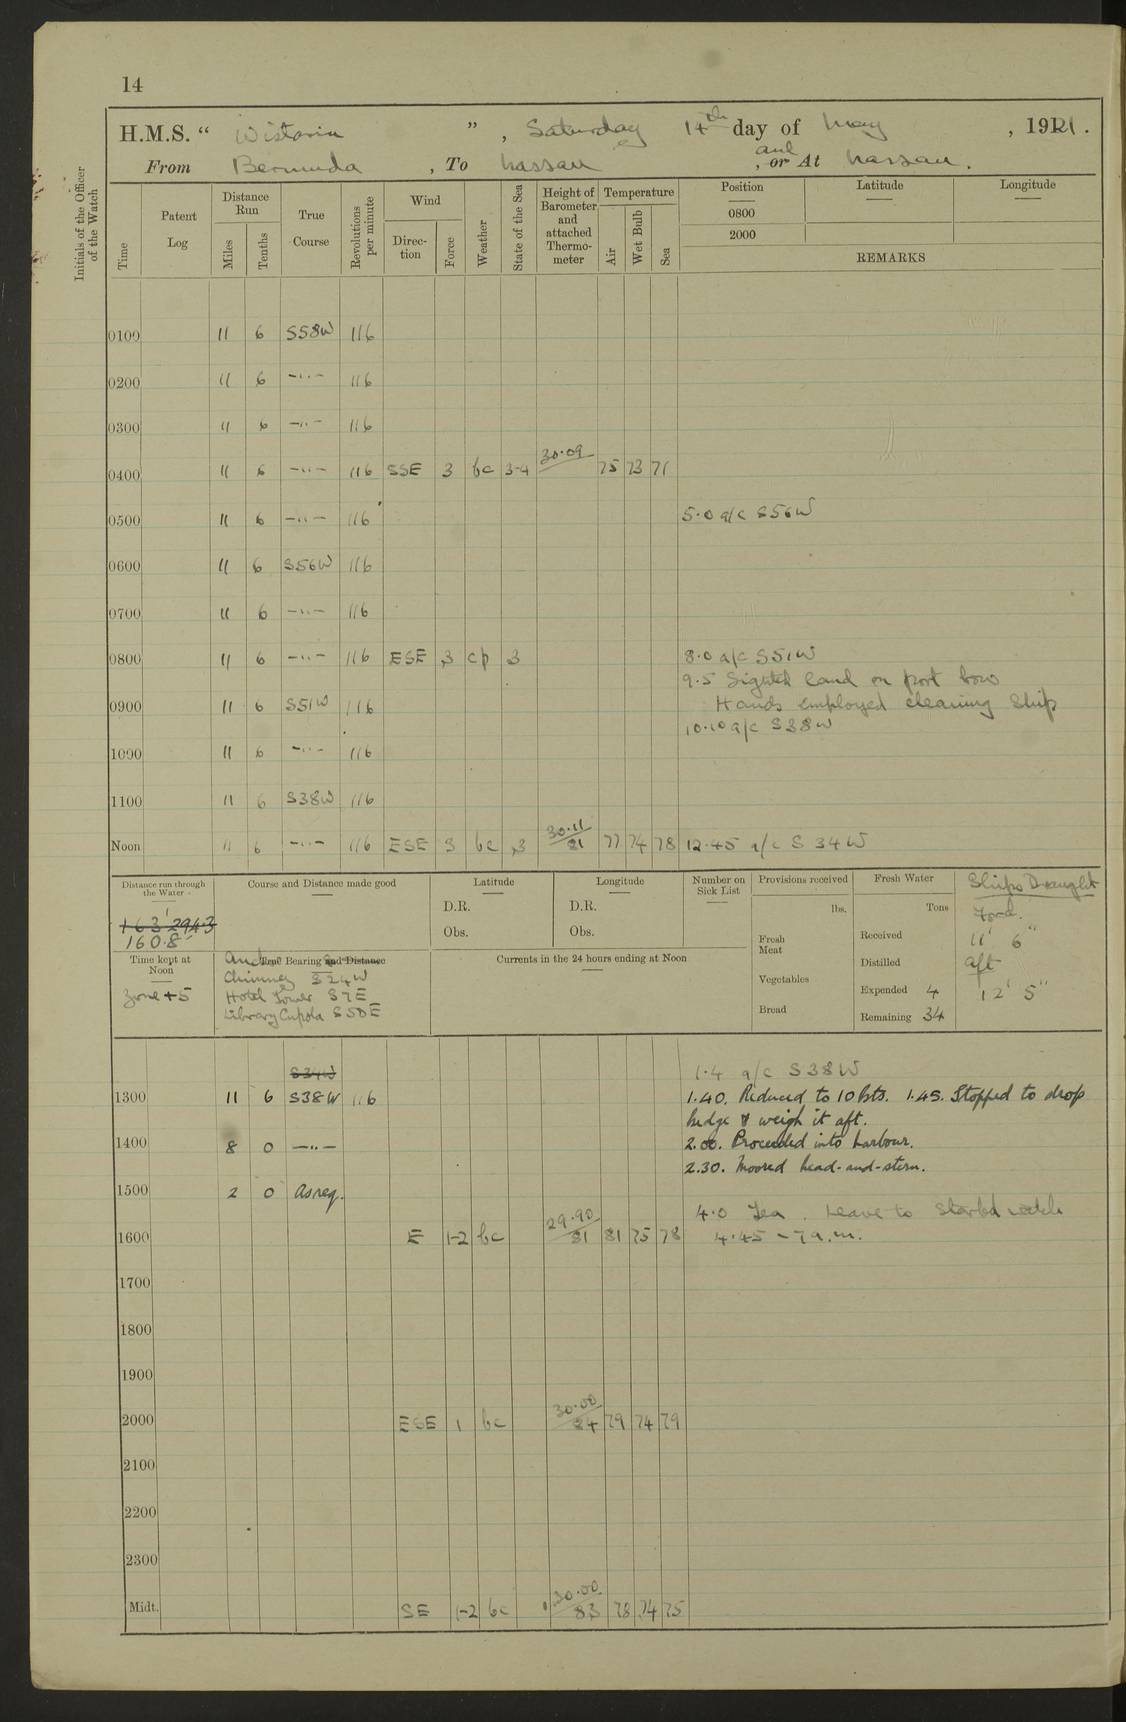 14
H.M.S. “ Wistaria ” , Saturday 14th day of May , 1921 .
From Bermuda , To Nassau , and or At Nassau .
Initials of the Officer of the Watch
Time | Patent Log | Distance Run Miles Tenths | True Course | Revolutions per minute | Wind Direc-tion Force | Weather | State of the Sea | Height of Barometer and attached Thermo-meter | Temperature Air Wet Bulb Sea | Position Latitude Longitude
0800
2000
REMARKS
0100 11 6 S58W 116
0200 11 6 -"- 116
0300 11 6 -"- 116
0400 11 6 -"- 116 SSE 3 bc 3-4 30.09 75 73 71
0500 11 6 -"- 116 5.0 a/c S56W
0600 11 6 S56W 116
0700 11 6 -"- 116
0800 11 6 -"- 116 ESE 3 cp 3 8.0 a/c S51W
9.5 Sighted land on port bow
0900 11 6 S51W 116 Hands employed cleaning ship
10.10 a/c S38W
1000 11 6 -"- 116
1100 11 6 S38W 116
Noon 11 6 -"- 116 ESE 3 bc 3 30.11 81 77 74 78 12.45 a/c S 34W
Distance run through the Water
163' 294.3
160.8'
Course and Distance made good
Latitude
D.R.
Obs.
Longitude
D.R.
Obs.
Number on Sick List
Provisions received
lbs.
Fresh Meat
Vegetables
Bread
Fresh Water
Tons
Received
Distilled
Expended 4
Remaining 34
Ships Draught
Ford.
11' 6"
aft
12' 5"
Time kept at Noon
Zone +5
True Bearing and Distance
Chimney S24W
Hotel Tower S7E
Library Cupola S50E
Currents in the 24 hours ending at Noon
S34W 1.4 a/c S38W
1300 11 6 S38W 116 1.40. Reduced to 10 kts. 1.45. Stopped to drop
kedge & weigh it aft.
1400 8 0 -"- 2.00. Proceeded into harbour.
2.30. Moored head-and-stern.
1500 2 0 As req.
4.0 Tea. Leave to Starbd watch
1600 E 1-2 bc 29.90 81 81 75 78 4.45 - 7 a.m.
1700
1800
1900
2000 ESE 1 bc 30.00 84 79 74 79
2100
2200
2300
Midt. SE 1-2 bc 30.00 83 78 74 75